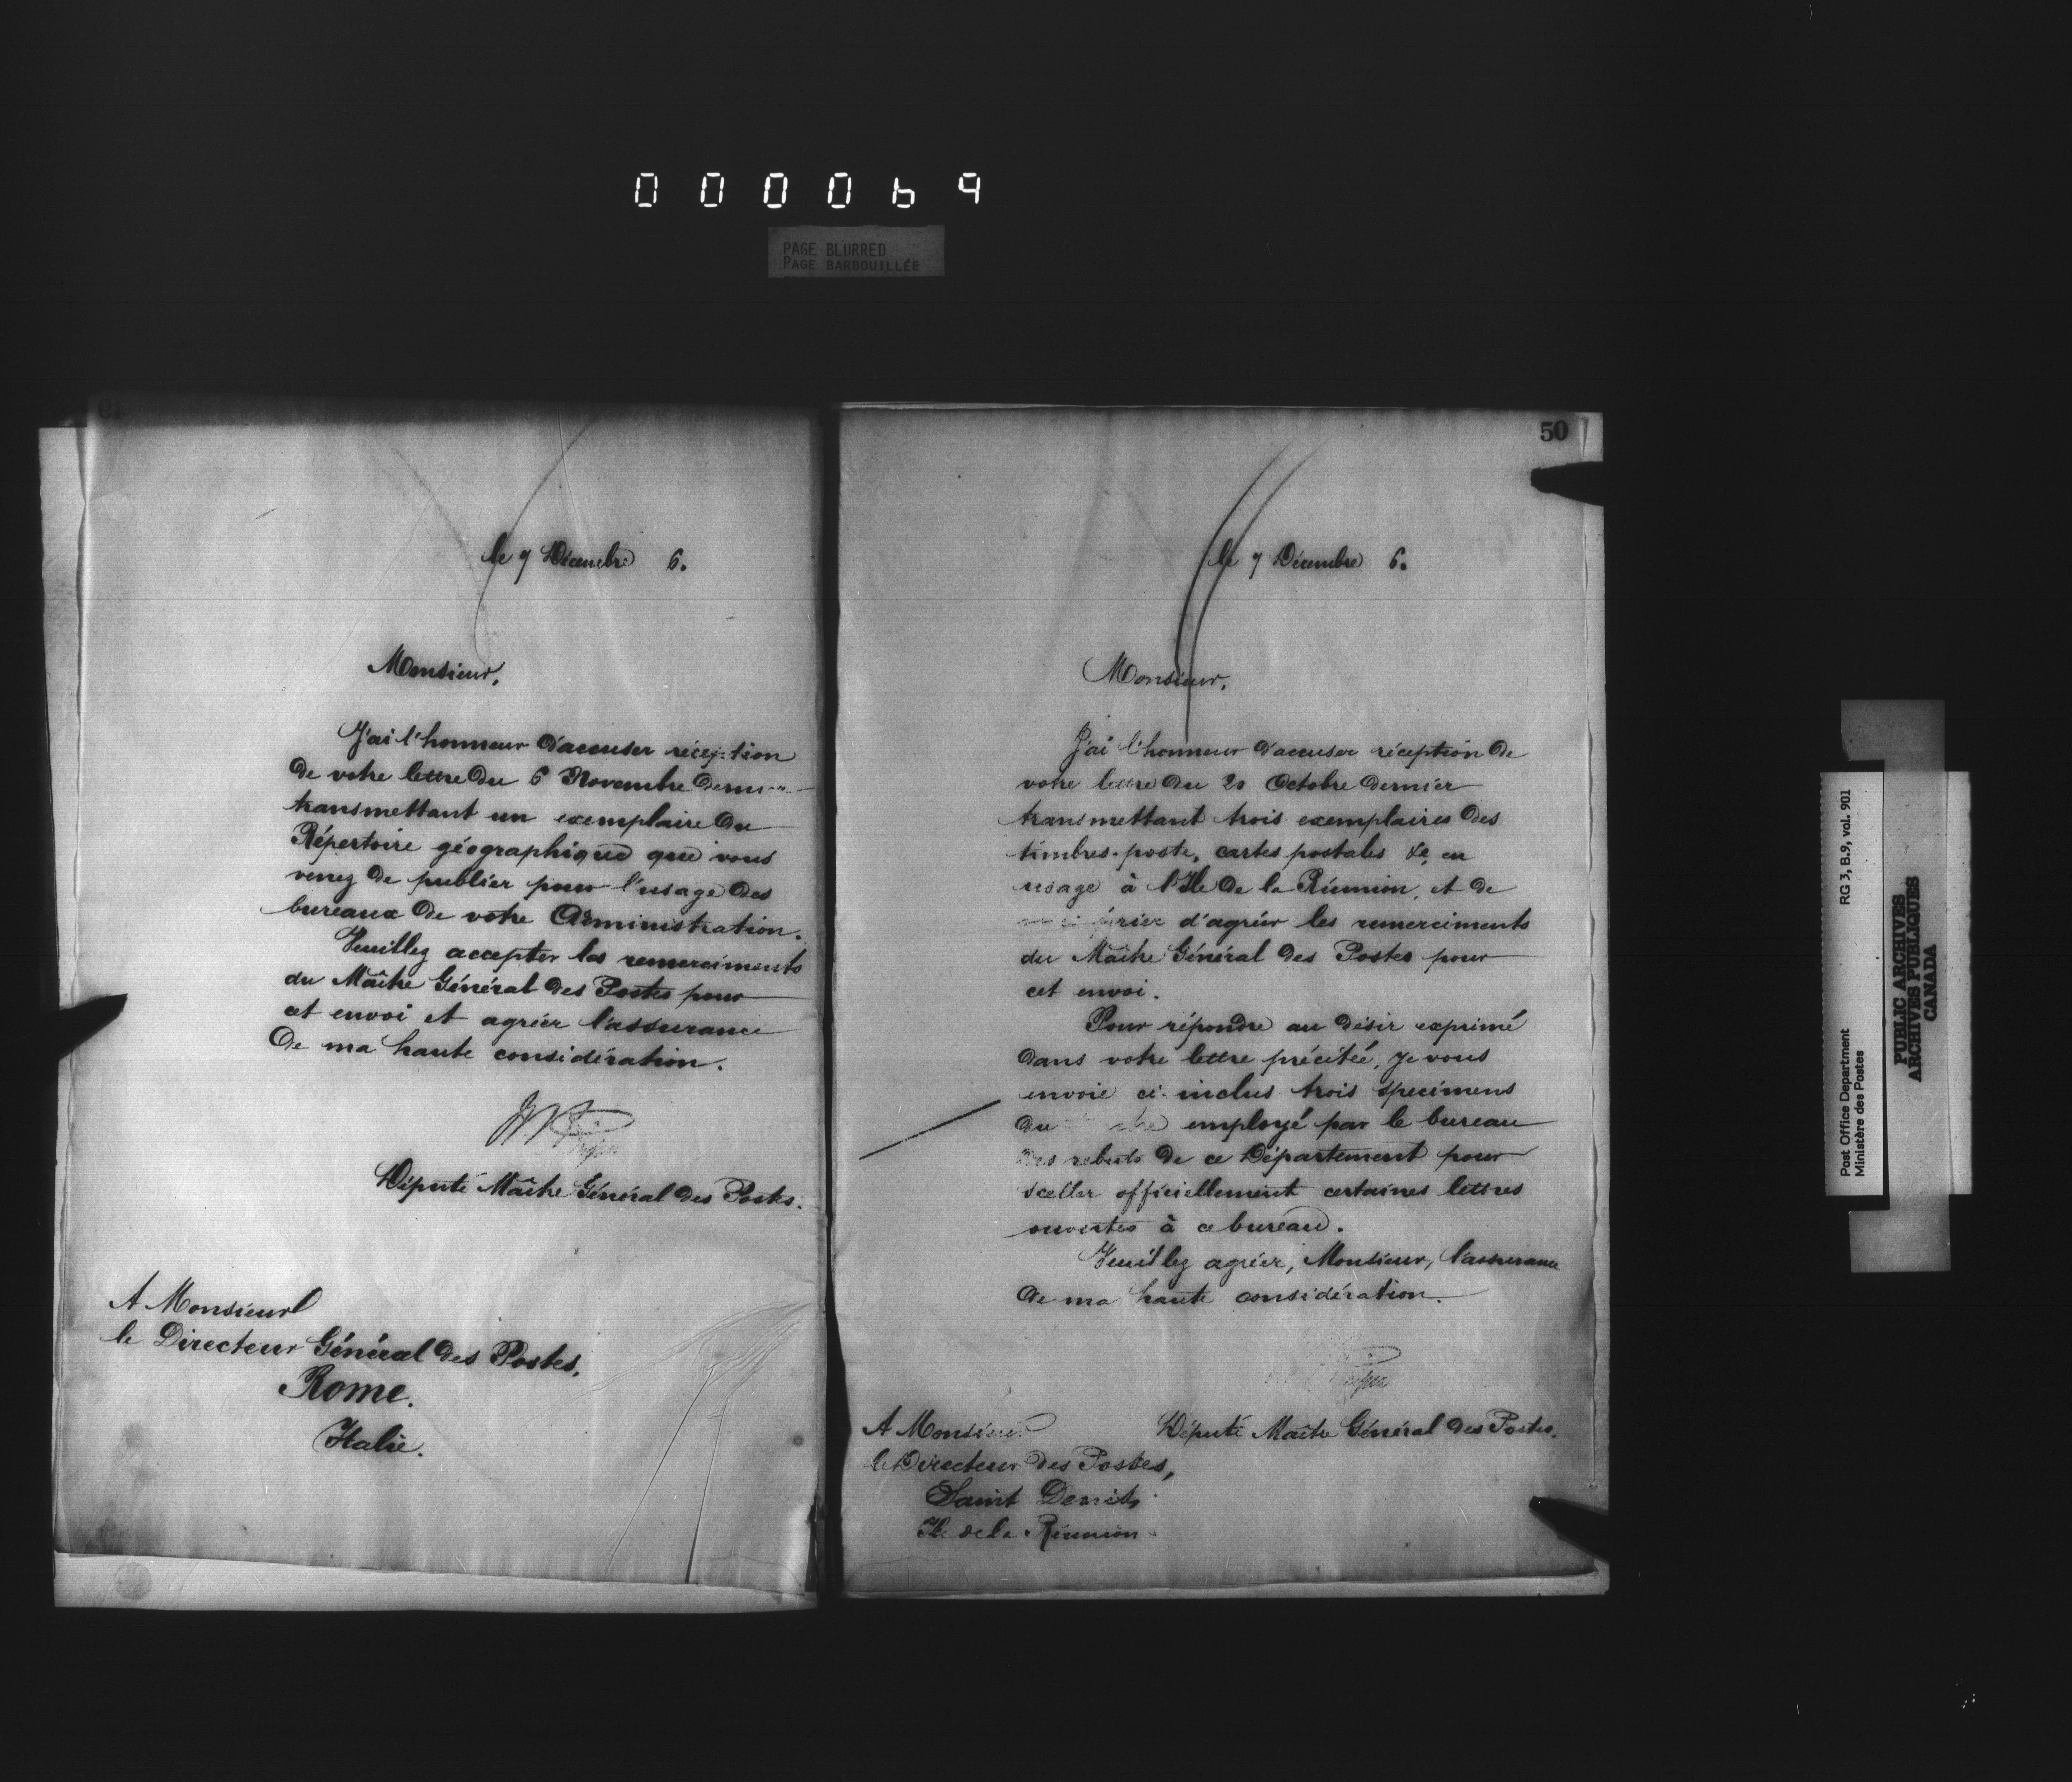 000069
PAGE BLURRED
PAGE BARBOUILLÉE
le 7 Décembre 6.
Monsieur,
J'ai l'honneur d'accuser réception
de votre lettre du 6 Novembre
transmettant un exemplaire du
Répertoire géographique que vous
venez de publier pour l'usage des
bureaux de votre Administration.
Veuillez accepter les remerciments
du Maître Général des Postes pour
cet envoi et agréer l'assurance
de ma haute considération.
Député Maître Général des Postes.
A Monsieur
le Directeur Général des Postes,
Rome.
Italie.
50
le 7 Décembre 6.
Monsieur,
J'ai l'honneur d'accuser réception de
votre lettre du 20 Octobre dernier
transmettant trois exemplaires des
timbres-poste, cartes postales &c, en
usage à l'Ile de la Réunion, et de
prier d'agréer les remerciments
du Maître Général des Postes pour
cet envoi.
Pour répondre au désir exprimé
dans votre lettre précitée, je vous
envoie ci-inclus trois specimens
du employé par le bureau
des rebuts de ce Département pour
sceller officiellement certaines lettres
ouvertes à ce bureau.
Veuillez agréer, Monsieur, l'assurance
de ma haute considération.
Député Maître Général des Postes.
A Monsieur
le Directeur des Postes,
Saint Denis
Ile de la Réunion.
Post Office Department RG 3, B.9, vol. 901
Ministère des Postes
PUBLIC ARCHIVES
ARCHIVES PUBLIQUES
CANADA